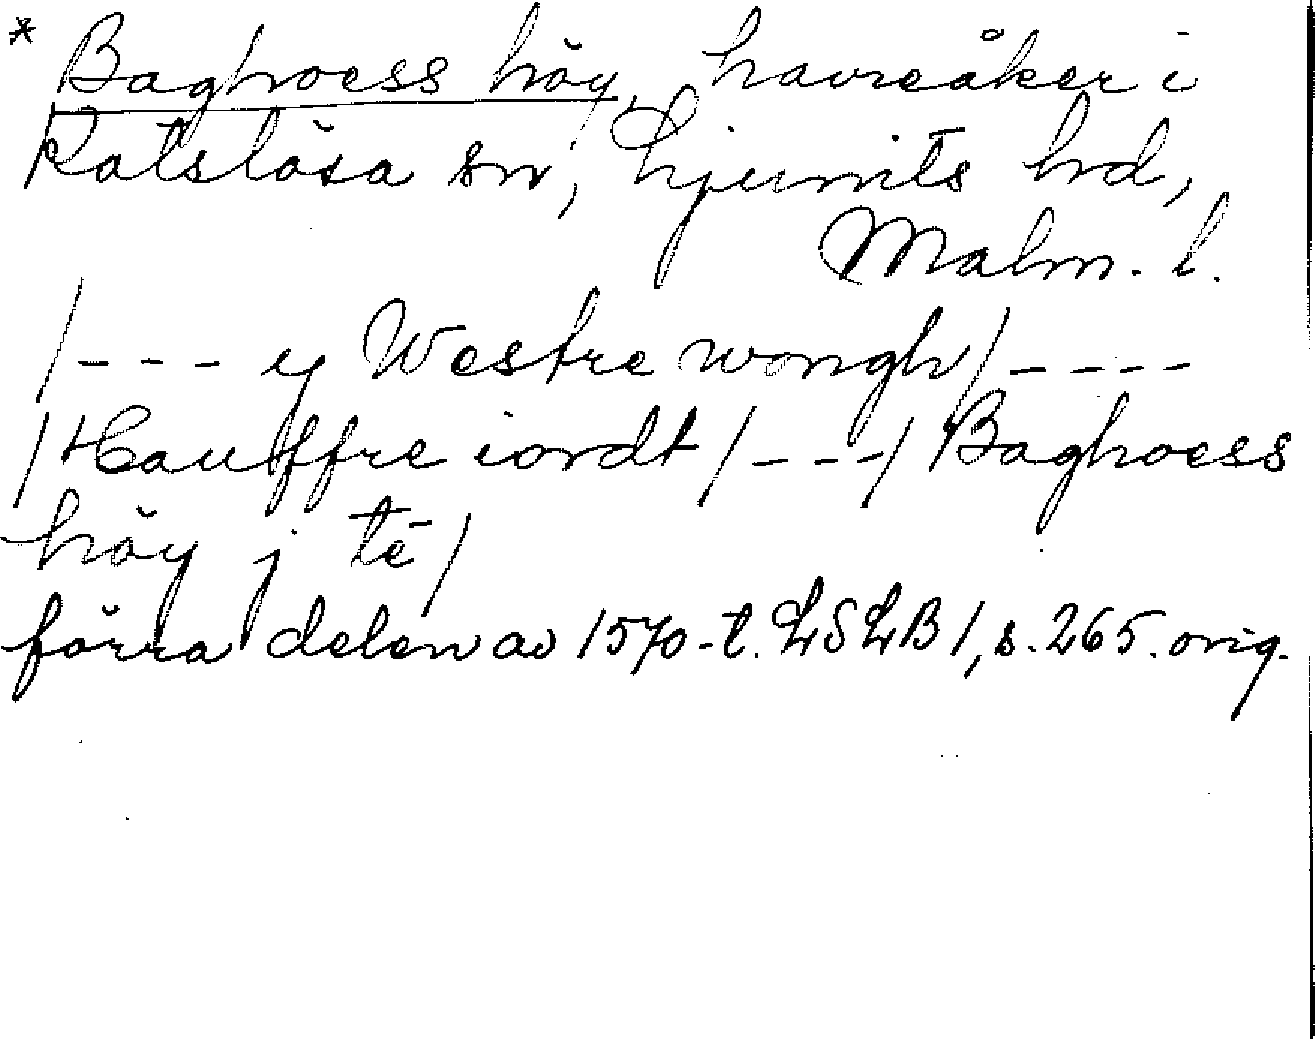 * Baghoess höy, havreåker i
Katslösa sn, Ljunits hd,
Malm. l.
/--- y Westre wongh/----
/Hauffre iordt/---/ Baghoess
höy j tē/
förra delen av 1570-t. LSLB 1, s. 265. orig.